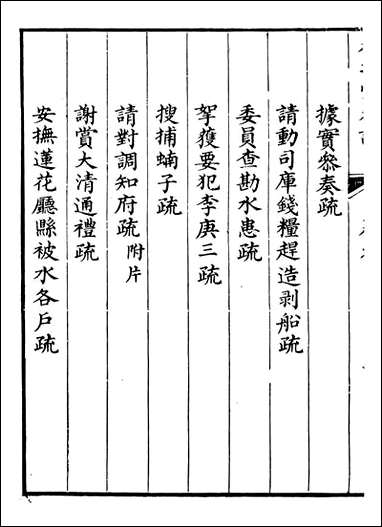 據實叅奏疏
請動司庫錢糧趕造剥船疏
委員查勘水患疏
拏獲要犯李庚三疏
搜捕蝻子疏
請對調知府疏 附片
謝賞大清通禮疏
安撫蓮花廳縣被水各戶疏